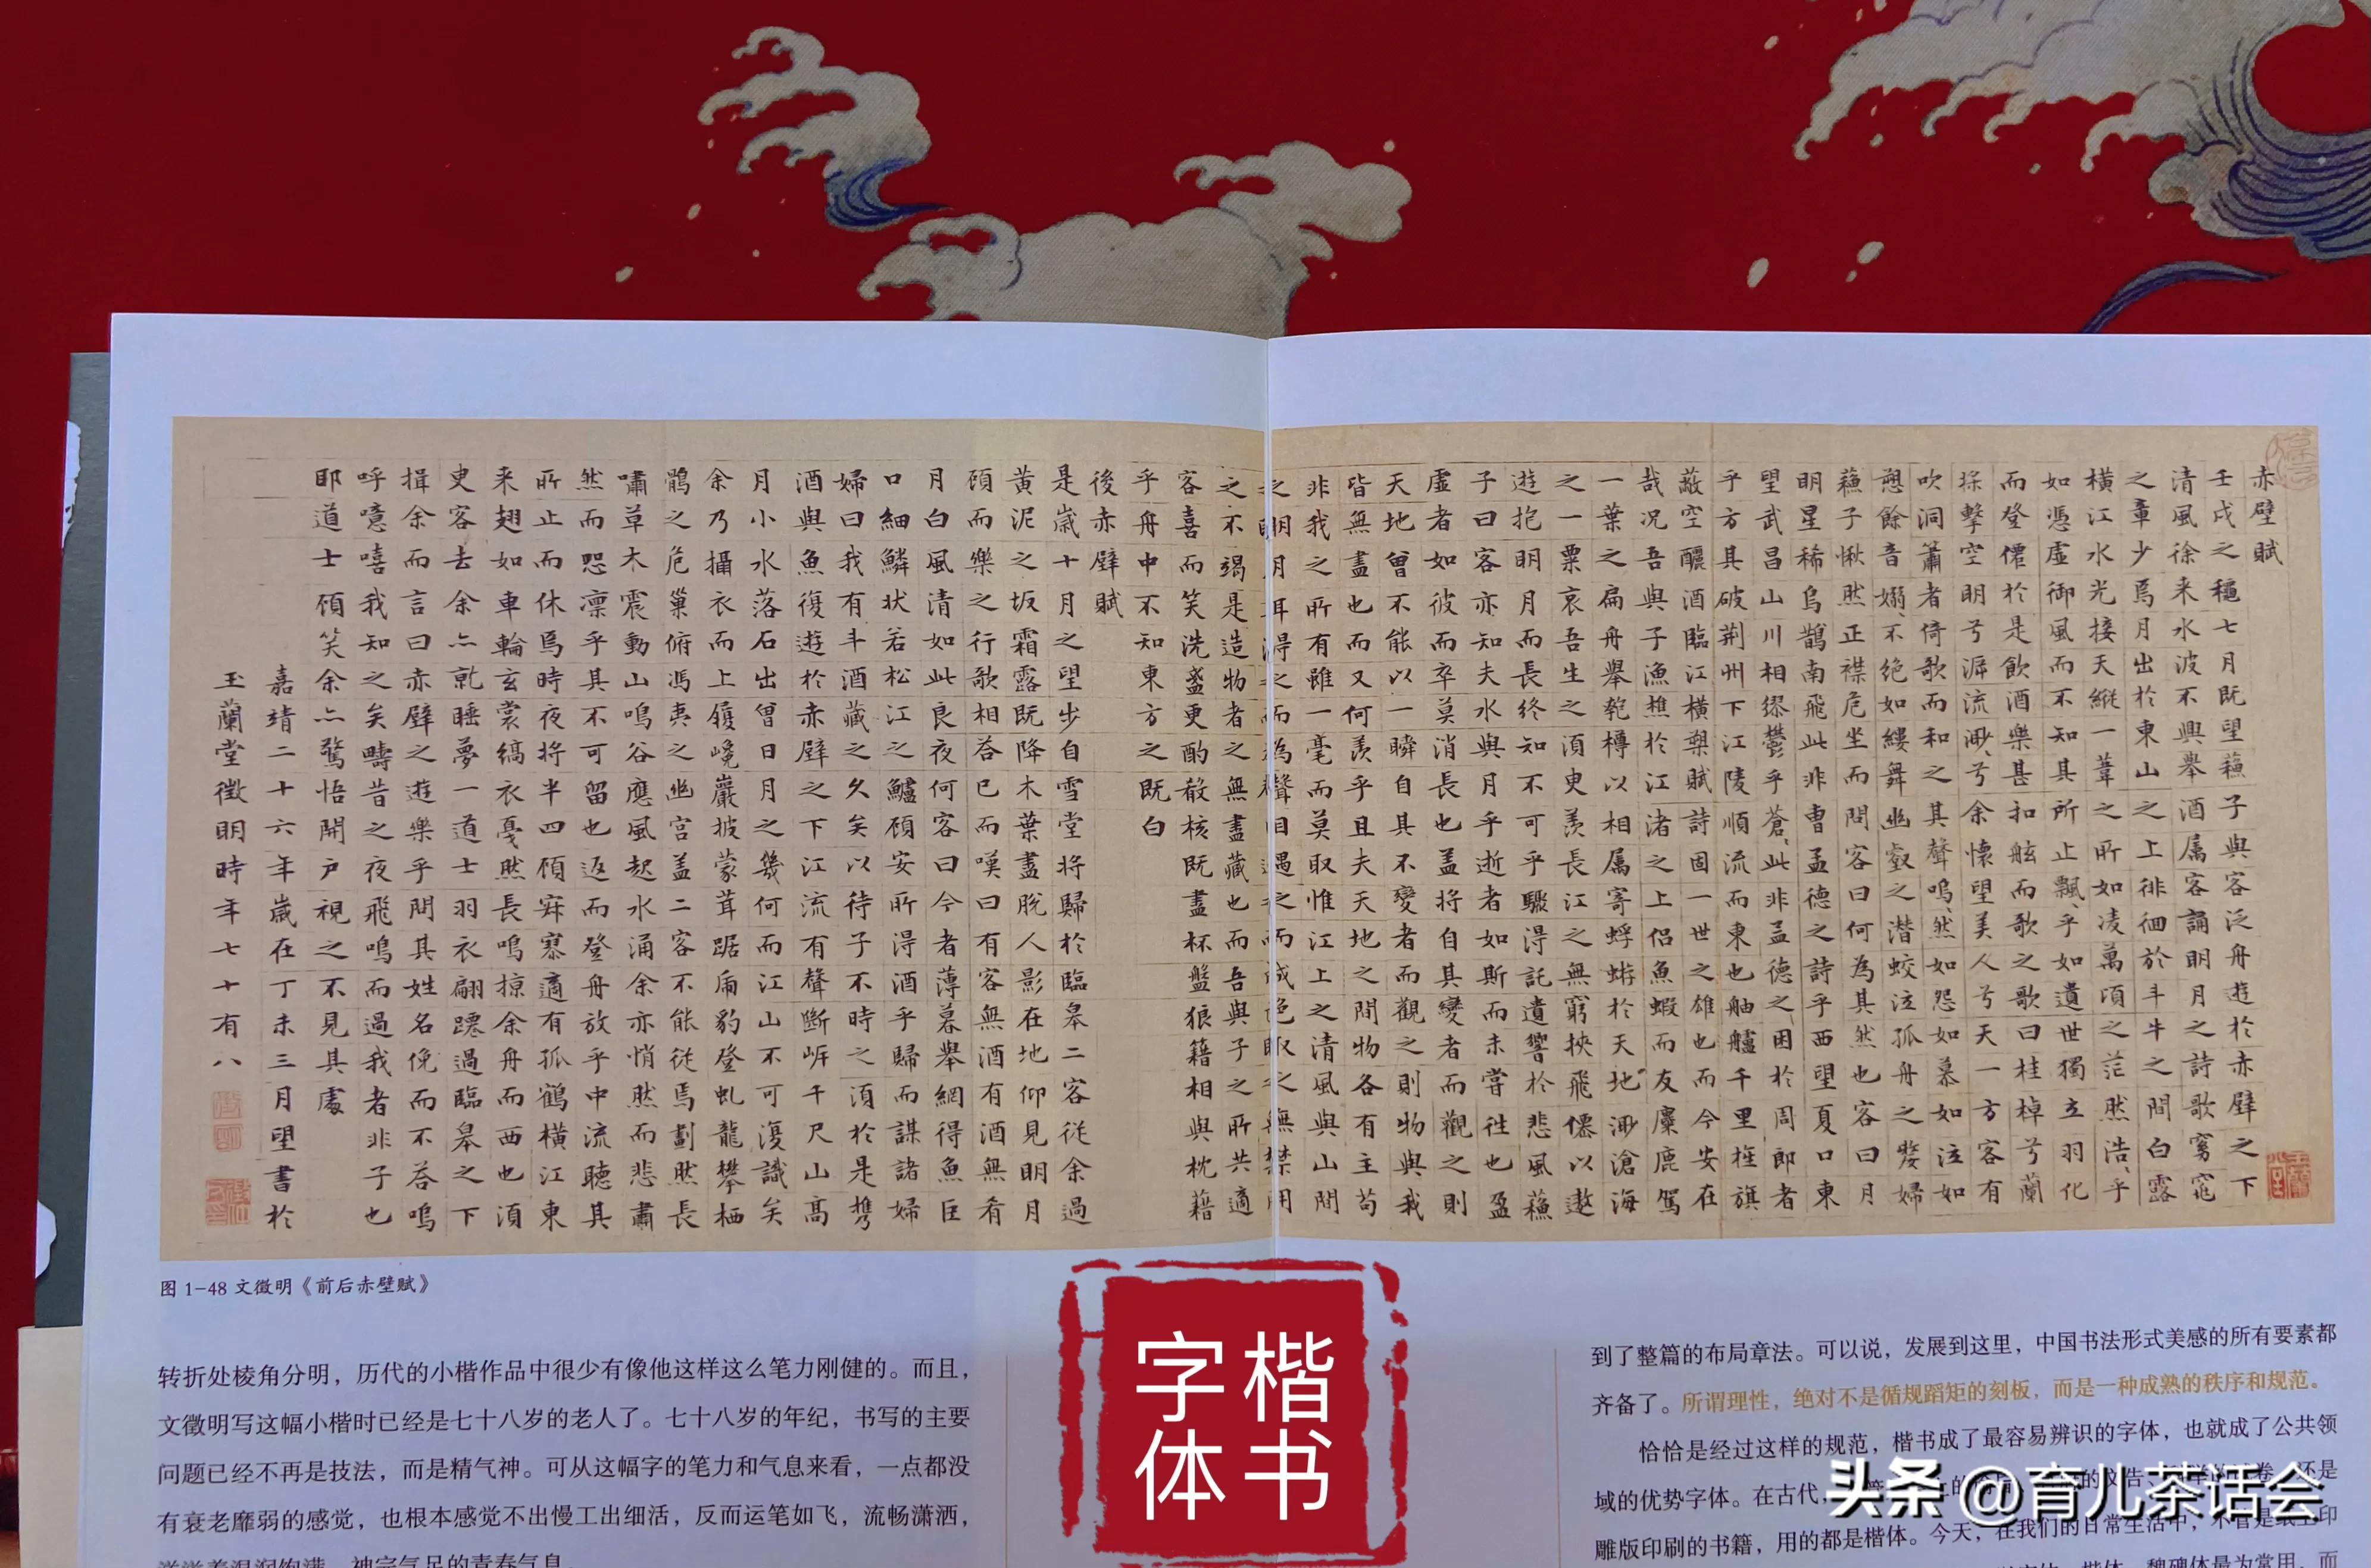 赤壁賦
壬戌之穐七月既望蘓子與客泛舟遊於赤壁之下
清風徐来水波不興舉酒属客誦明月之詩歌窈窕
之章少焉月出於東山之上徘徊於斗牛之間白露
橫江水光接天縱一葦之所如凌萬頃之茫然浩、乎
如憑虛御風而不知其所止飄乎如遺世獨立羽化
而登僊於是飲酒樂甚扣舷而歌之歌曰桂棹兮蘭
擊空明兮泝流渺、兮余懷望美人兮天一方客有
吹洞簫者倚歌而和之其聲嗚、然如怨如慕如泣如
愬餘音嫋不絶如縷舞幽壑之潜蛟泣孤舟之嫠婦
蘓子愀然正襟危坐而問客曰何為其然也客曰月
明星稀烏鵲南飛此非曹孟德之詩乎西望夏口東
望武昌山川相繆鬱乎蒼、此非孟德之困於周郎者
乎方其破荆州下江陵順流而東也舳艫千里旌旗
蔽空釃酒臨江橫槊賦詩固一世之雄也而今安在
哉况吾與子漁樵於江渚之上侣魚蝦而友麋鹿駕
一葉之扁舟舉匏樽以相属寄蜉蝣於天地渺滄海
之一粟哀吾生之湏臾羡長江之無窮挾飛僊以遨
遊抱明月而長終知不可乎驟得託遺響於悲風蘓
子曰客亦知夫水與月乎逝者如斯而未嘗往也盈
虛者如彼而卒莫消長也盖將自其變者而觀之則
天地曾不能以一瞬自其不變者而觀之則物與我
皆無盡也而又何羡乎且夫天地之間物各有主苟
非我之所有雖一毫而莫取惟江上之清風與山間
之明月耳得之而為聲目遇之而成色取之無禁用
之不竭是造物者之無盡藏也而吾與子之所共適
客喜而笑洗盞更酌殽核既盡杯盤狼籍相與枕藉
乎舟中不知東方之既白
後赤壁賦
是歲十月之望步自雪堂将歸於臨皋二客従余過
黄泥之坂霜露既降木葉盡脫人影在地仰見明月
頋而樂之行歌相答已而嘆曰有客無酒有酒無肴
月白風清如此良夜何客曰今者薄暮舉網得魚巨
口細鱗状若松江之鱸頋安所得酒乎歸而謀諸婦
婦曰我有斗酒藏之久矣以待子不時之湏於是携
酒與魚復遊於赤壁之下江流有聲斷岸千尺山高
月小水落石出曾日月之幾何而江山不可復識矣
余乃攝衣而上履巉巖披蒙茸踞虎豹登虬龍攀栖
鶻之危巢俯馮夷之幽宫盖二客不能従焉劃然長
嘯草木震動山鳴谷應風起水涌余亦悄然而悲肅
然而恐凛乎其不可留也返而登舟放乎中流聽其
所止而休焉時夜将半四頋寂寥適有孤鶴橫江東
来翅如車輪玄裳縞衣戞然長鳴掠余舟而西也湏
臾客去余亦就睡夢一道士羽衣翩躚過臨皋之下
揖余而言曰赤壁之遊樂乎問其姓名俛而不答嗚
呼噫嘻我知之矣疇昔之夜飛鳴而過我者非子也
耶道士頋笑余亦驚悟開户視之不見其處
嘉靖二十六年歲在丁未三月望書於
玉蘭堂徵明時年七十有八
图 1-48 文徵明《前后赤壁赋》
转折处棱角分明，历代的小楷作品中很少有像他这样这么笔力刚健的。而且，
文徵明写这幅小楷时已经是七十八岁的老人了。七十八岁的年纪，书写的主要
问题已经不再是技法，而是精气神。可从这幅字的笔力和气息来看，一点都没
有衰老靡弱的感觉，也根本感觉不出慢工出细活，反而运笔如飞，流畅潇洒，
神完气足的青春气息。
楷书
字体
到了整篇的布局章法。可以说，发展到这里，中国书法形式美感的所有要素都
齐备了。所谓理性，绝对不是循规蹈矩的刻板，而是一种成熟的秩序和规范。
恰恰是经过这样的规范，楷书成了最容易辨识的字体，也就成了公共领
域的优势字体。在古代，
雕版印刷的书籍，用的都是楷体。今天，在我们的日常生活中，不管是纸上印
头条 @育儿茶话会